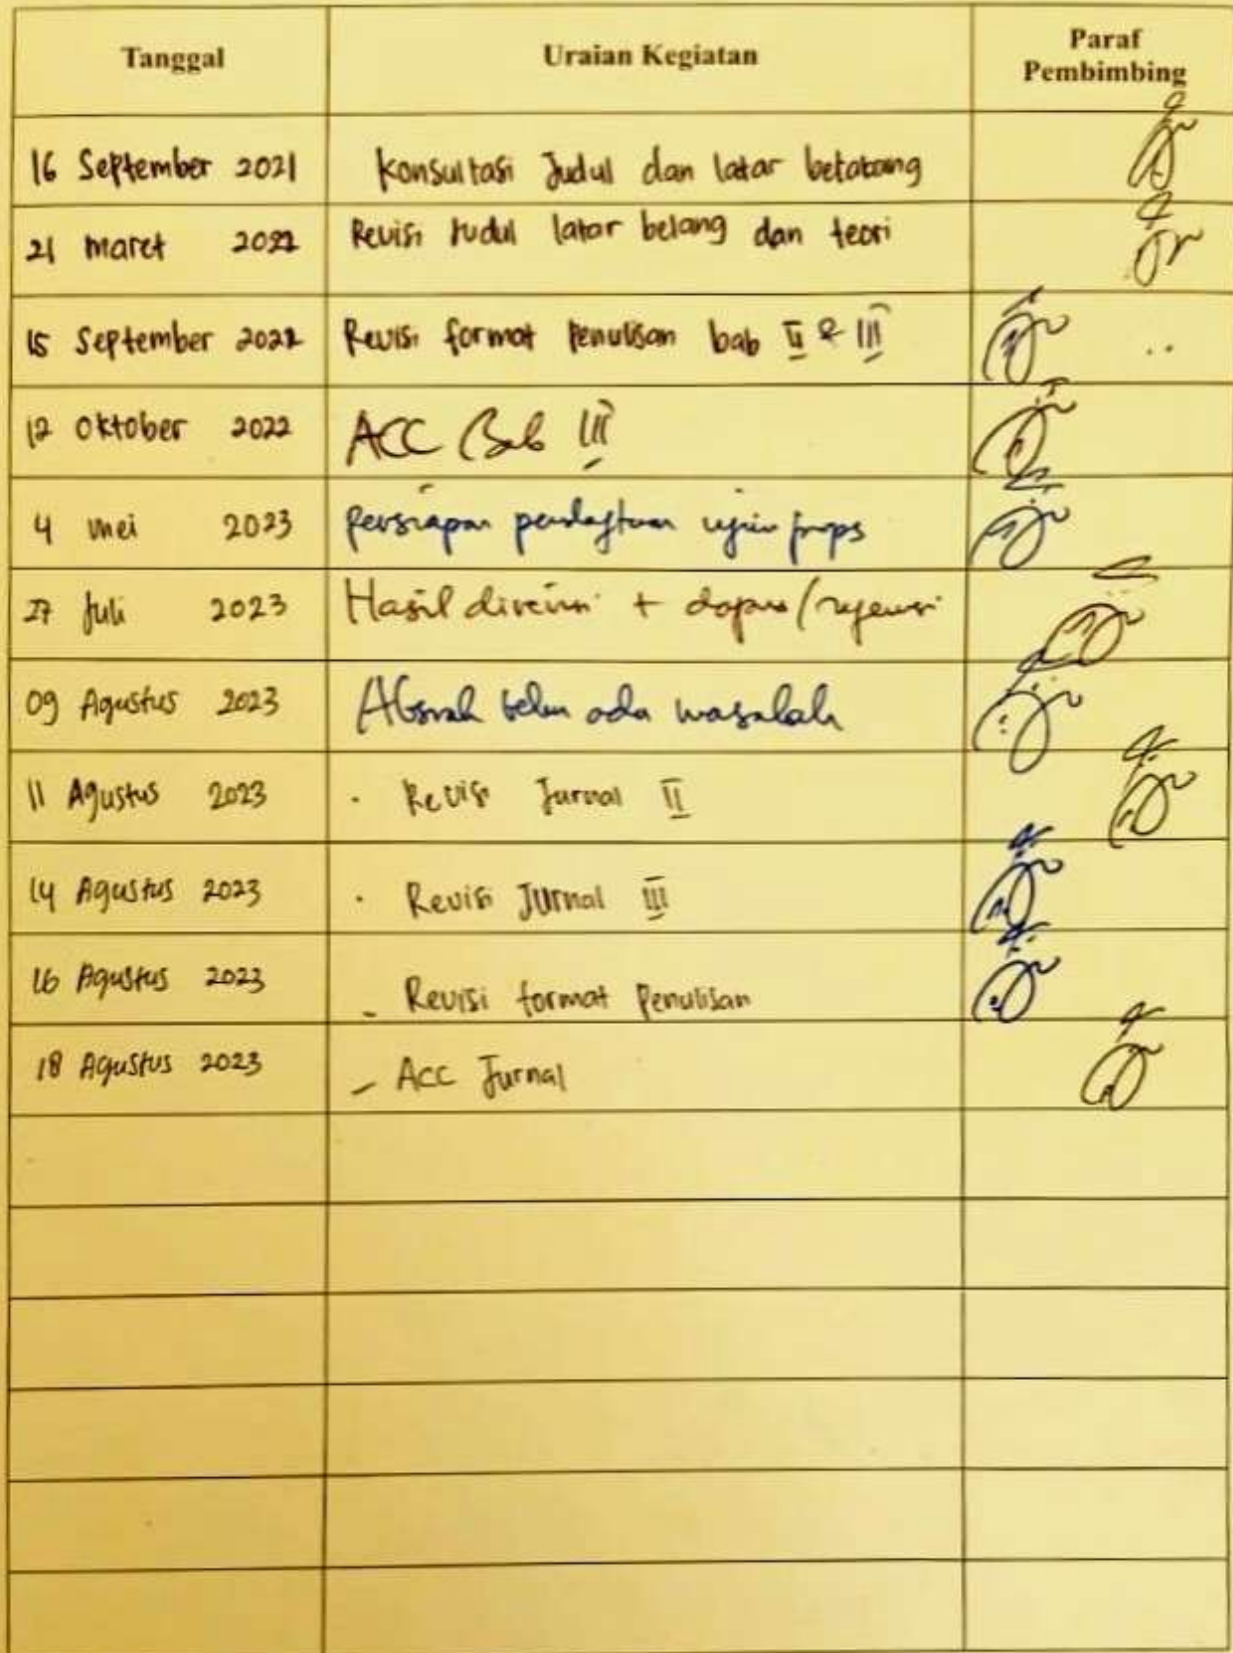 Tanggal Uraian Kegiatan Paraf Pembimbing
16 September 2021 Konsultasi Judul dan latar belakang
21 maret 2022 Revisi Judul latar belang dan teori
15 September 2022 Revisi format penulisan bab II & III
12 Oktober 2022 ACC Bab III
4 mei 2023 persiapan pendaftaran ujian props
27 Juli 2023 Hasil direvisi + dapus /
09 Agustus 2023 belum ada masalah
11 Agustus 2023 · Revisi Jurnal II
14 Agustus 2023 · Revisi Jurnal III
16 Agustus 2023 - Revisi format Penulisan
18 Agustus 2023 - ACC Jurnal